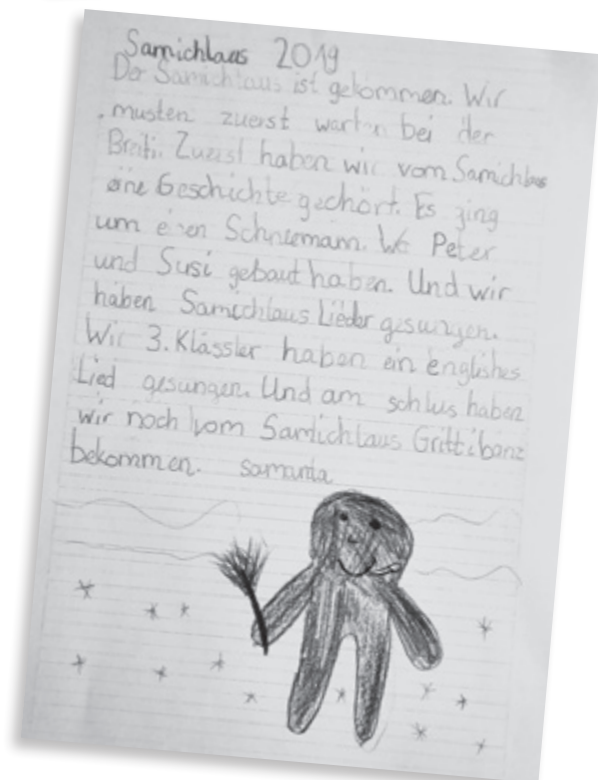 Samichlaus 2019
Der Samichlaus ist gekommen. Wir
musten zuerst warten bei der
Breiti. Zuerst haben wir vom Samichlaus
eine Geschichte gehört. Es ging
um einen Schneemann. Wo Peter
und Susi gebaut haben. Und wir
haben Samichlaus Lieder gesungen.
Wir 3. Klässler haben ein englishes
Lied gesungen. Und am schlus haben
wir noch vom Samichlaus Grittibänz
bekommen. Samanta